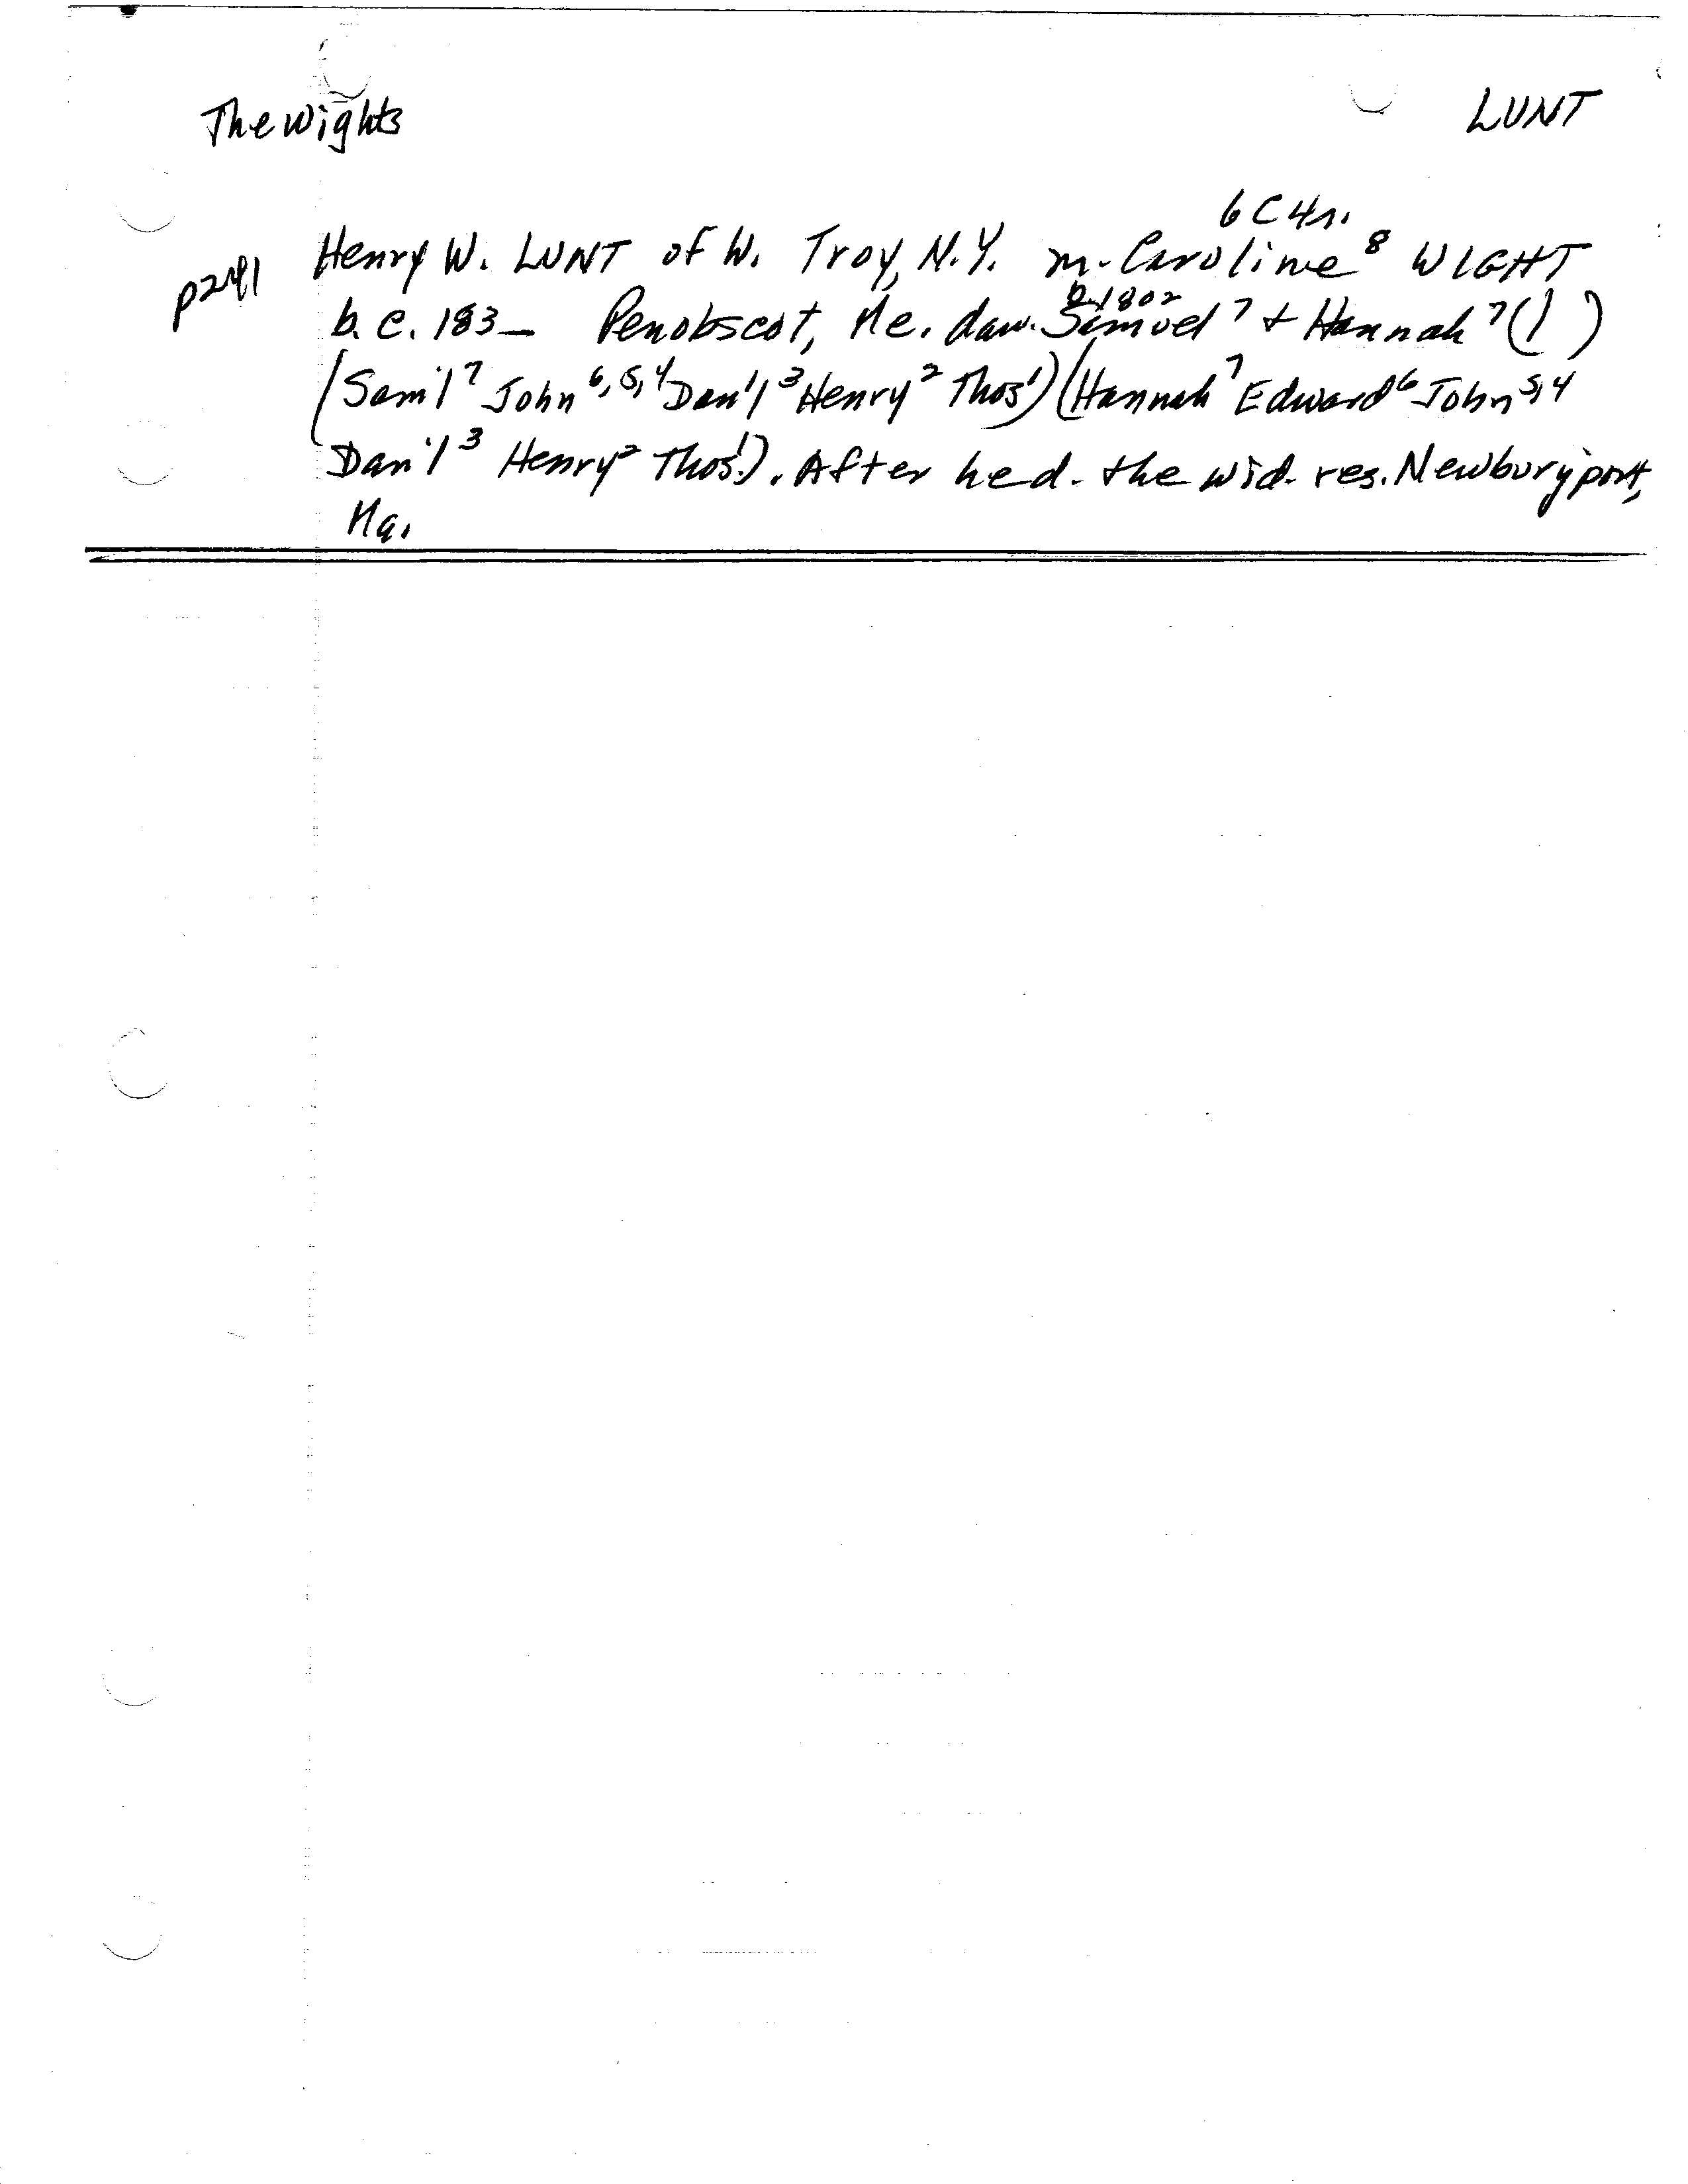 The Wights LUNT
6C4r.
p241 Henry W. LUNT of W. Troy, N.Y. m. Caroline⁸ WIGHT
b. 1802
b. c. 183_ Penobscot, Me. dau. Samuel⁷ + Hannah⁷ ( )
(Sam'l⁷ John⁶,⁵,⁴ Dan'l³ Henry² Thos¹) (Hannah⁷ Edward⁶ John⁵,⁴
Dan'l³ Henry² Thos¹.). After he d. the wid. res. Newburyport,
Ma.